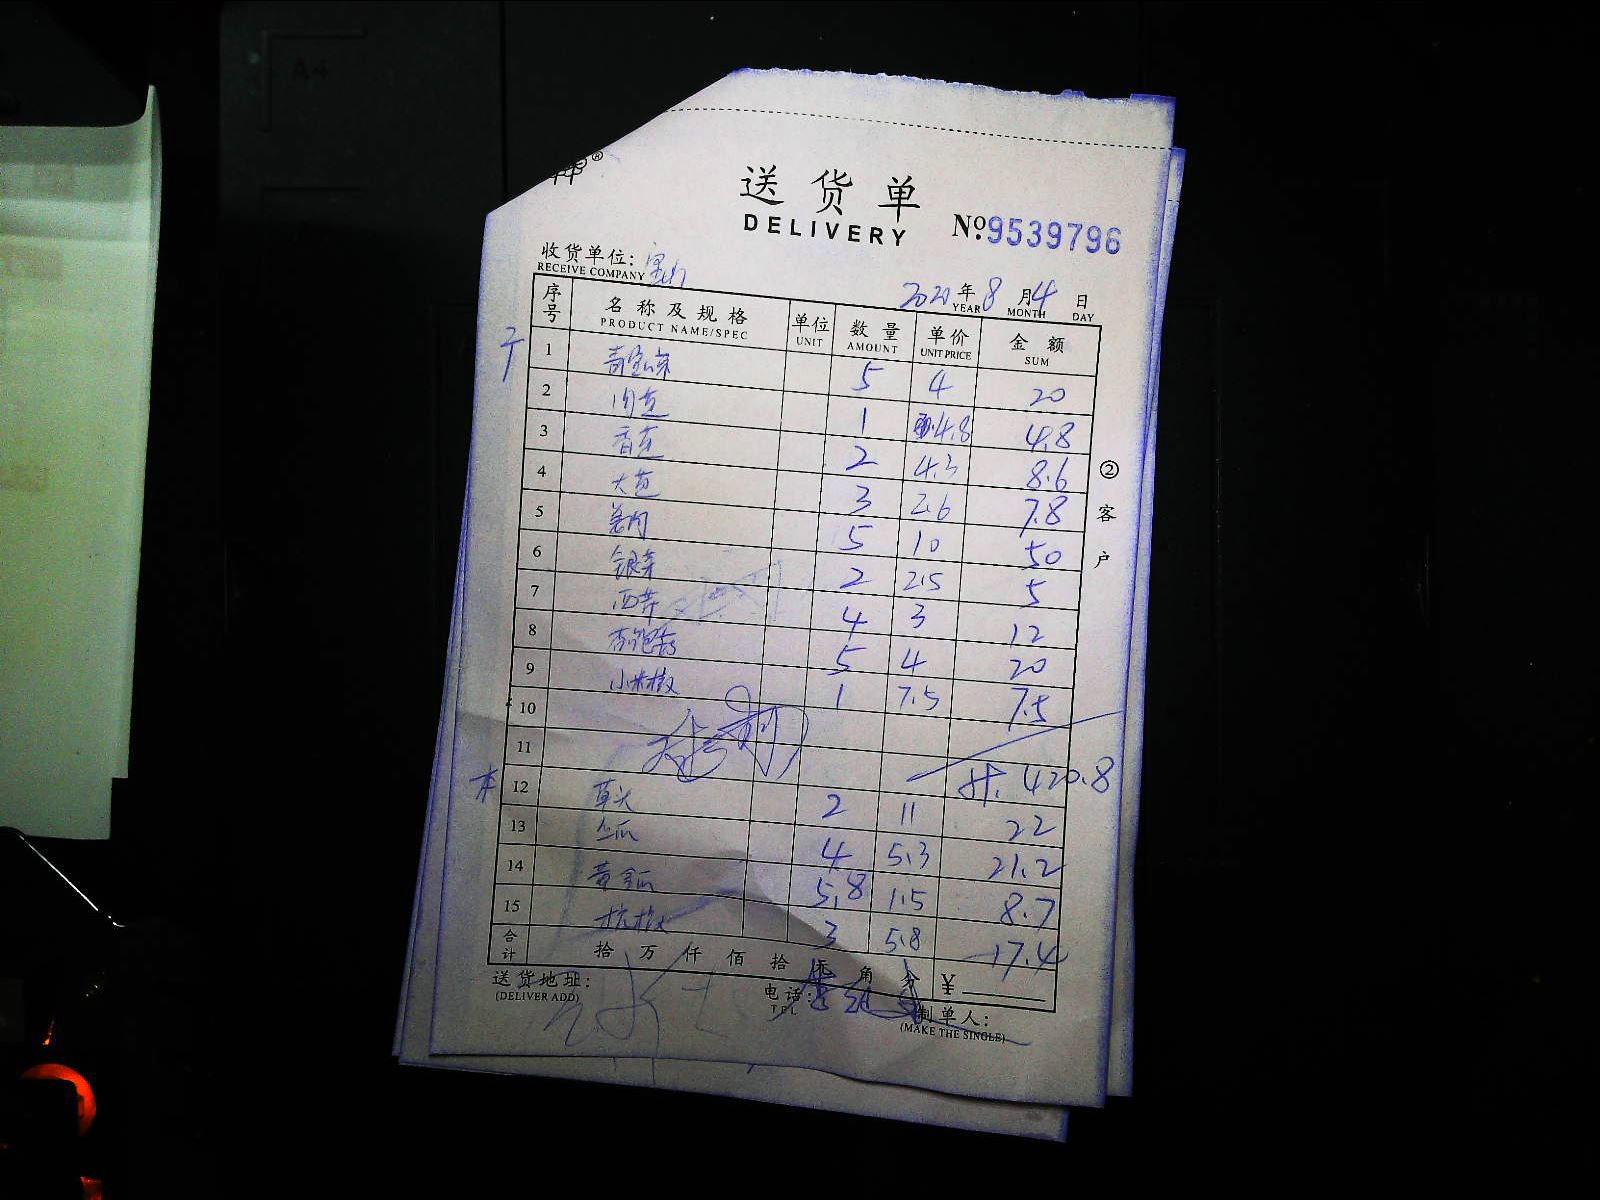 A4
®
送货单
DELIVERY
№9539796
收货单位:
RECEIVE COMPANY
2020年8月4日
YEAR MONTH DAY
序号 名称及规格 单位 数量 单价 金额
PRODUCT NAME/SPEC UNIT AMOUNT UNIT PRICE SUM
1 5 4 20
2 1 4.8 4.8
3 香芹 2 4.3 8.6
4 大葱 3 2.6 7.8
5 姜肉 5 10 50
6 银芽 2 2.5 5
7 西芹 4 3 12
8 杏鲍菇 5 4 20
9 小米椒 1 7.5 7.5
10
11 计. 420.8
12 草头 2 11 22
13 丝瓜 4 5.3 21.2
14 黄金瓜 5.8 1.5 8.7
15 杭椒 3 5.8 17.4
合计 拾 万 仟 佰 拾 元 角 分 ¥
送货地址:
(DELIVER ADD)
电话:
TEL
制单人:
(MAKE THE SINGLE)
②客户